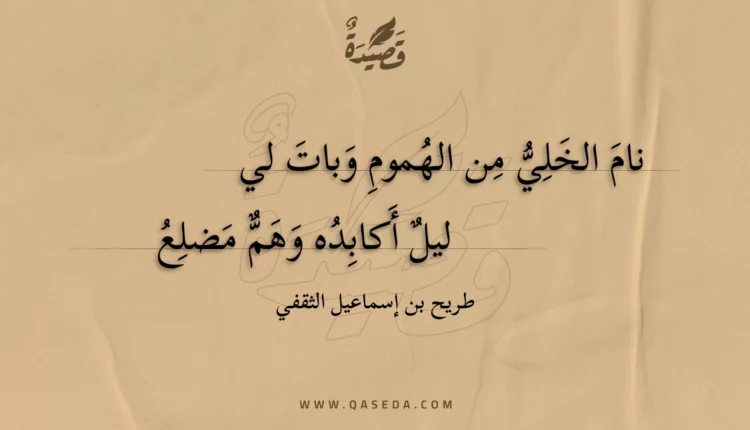 قَصِيْدَةٌ
نامَ الخَلِيُّ مِن الهُمومِ وَباتَ لي
ليلٌ أَكابِدُه وَهَمٌّ مَضلِعُ
طريح بن إسماعيل الثقفي
WWW.QASEDA.COM